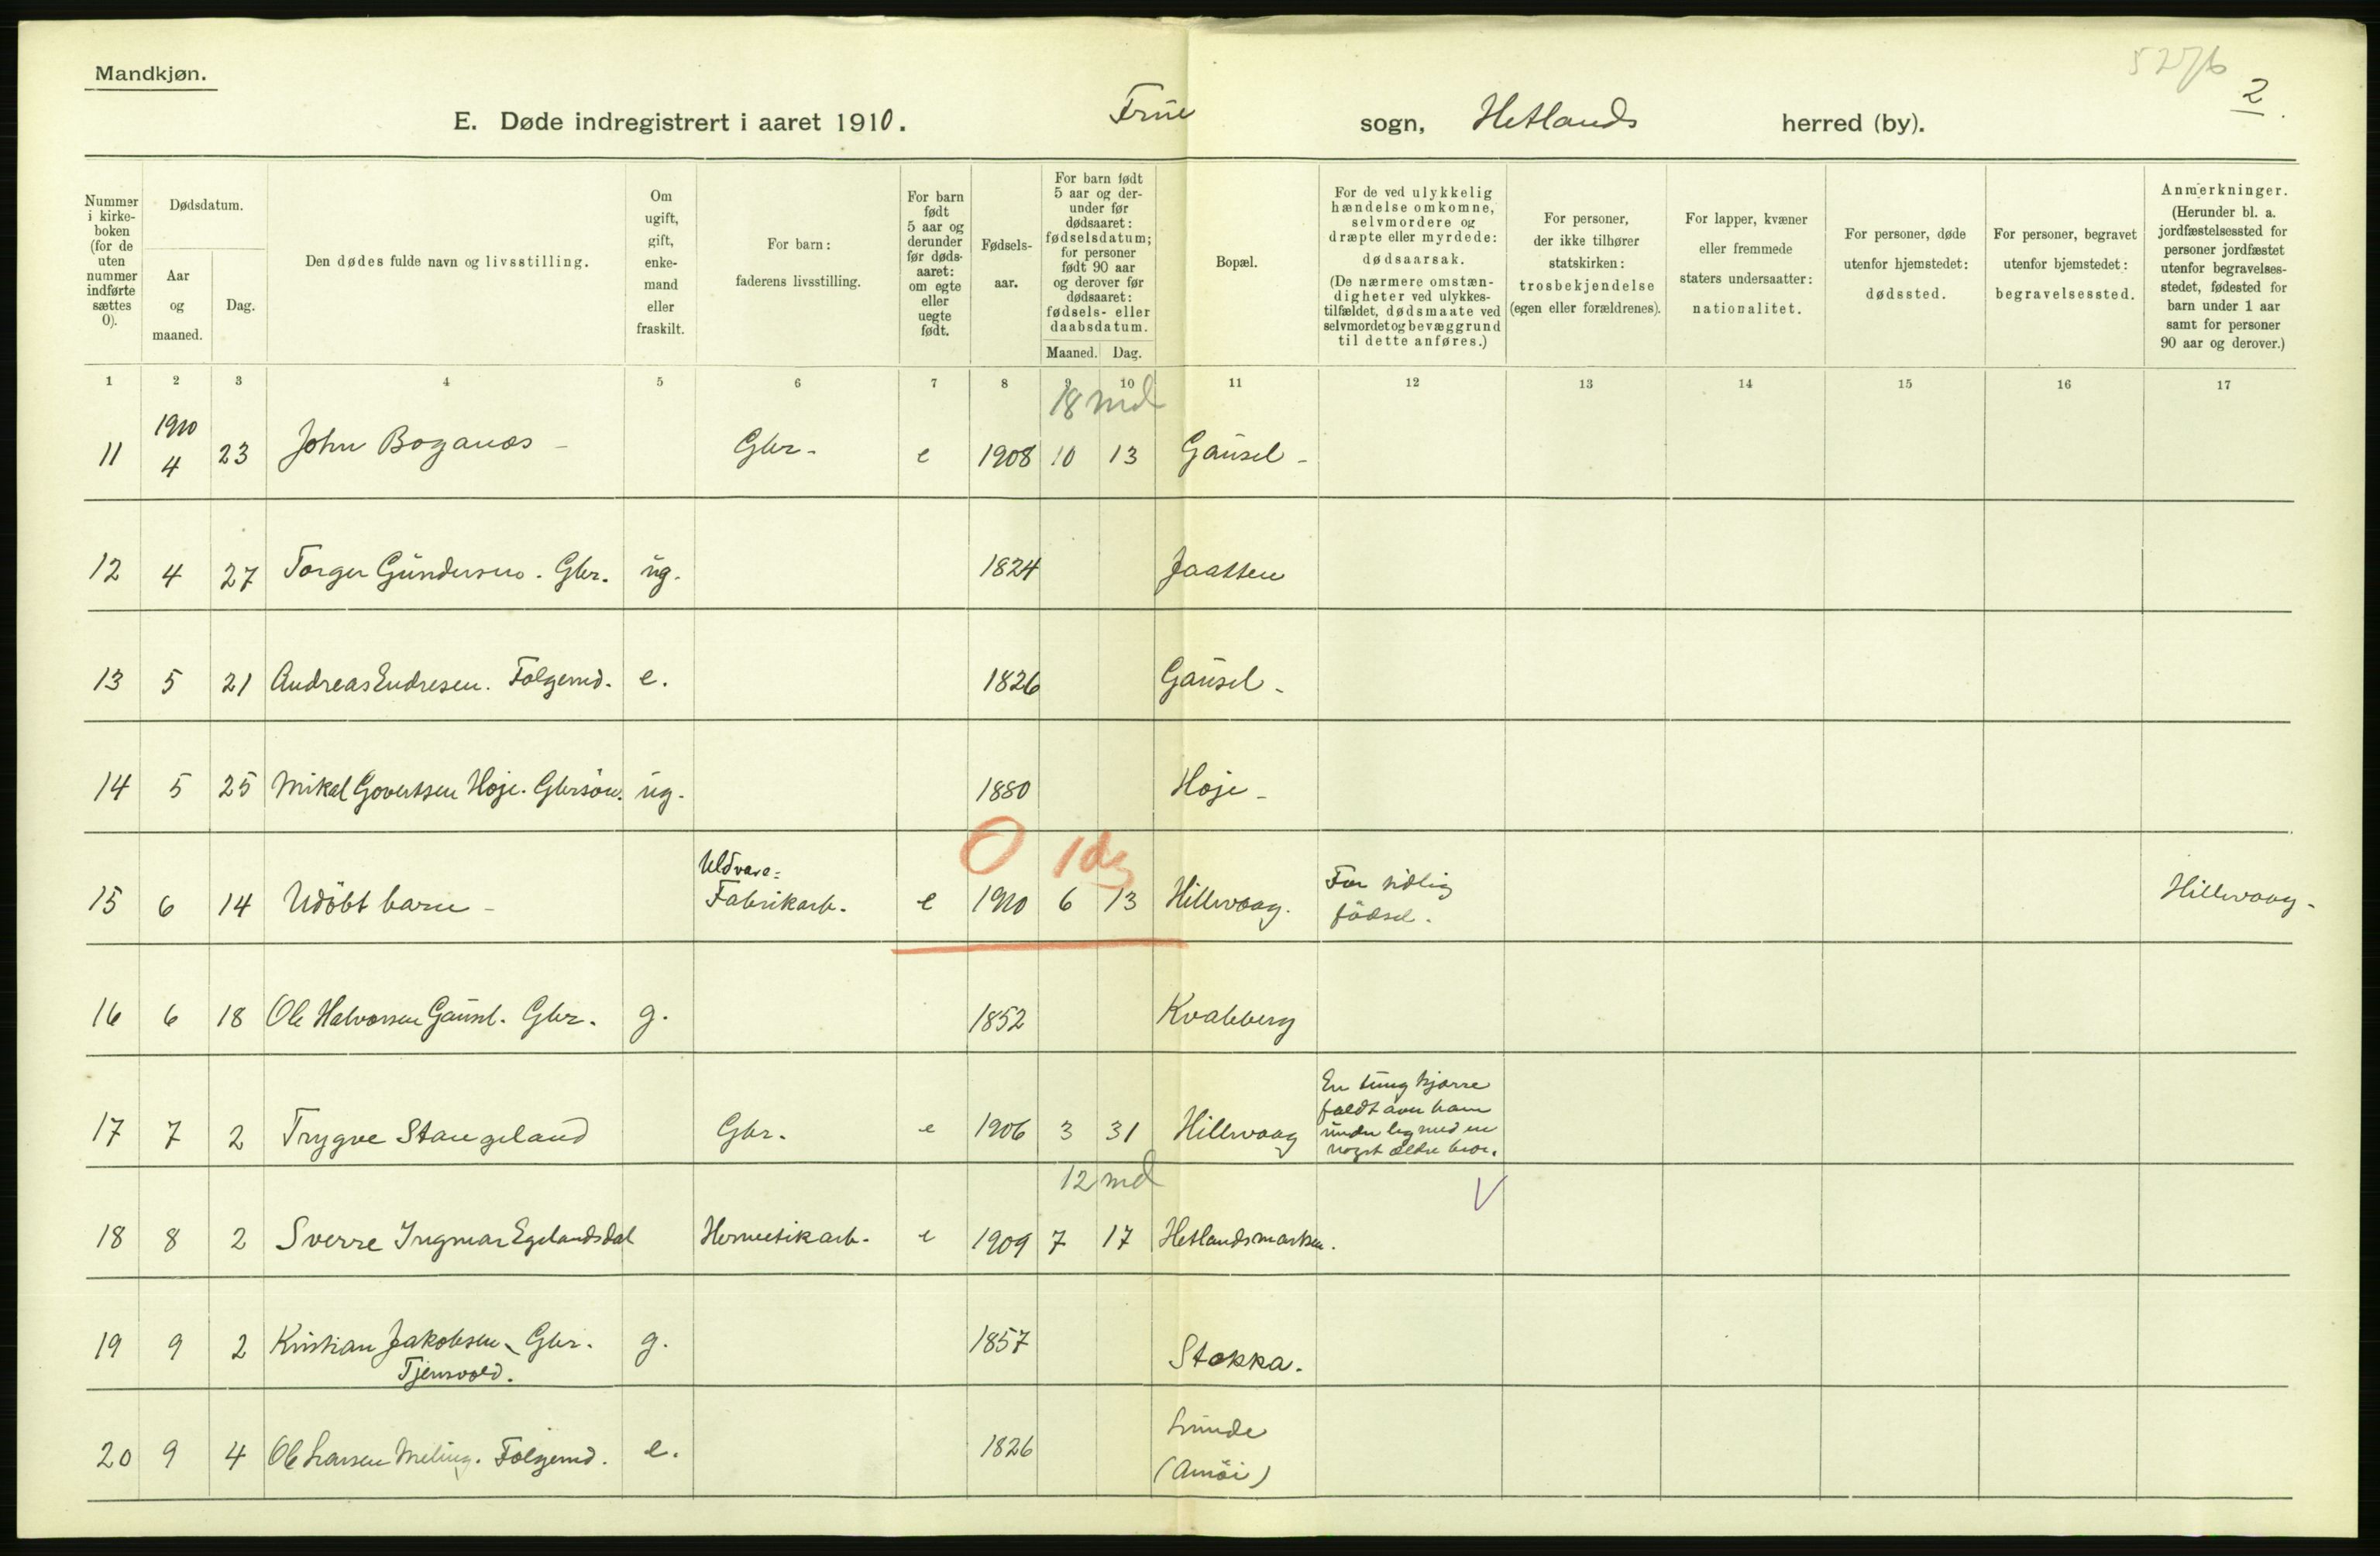 Mandkjøn.
5276
2
E. Døde indregistrert i aaret 1910. Frue sogn, Hetlands herred (by).
Nummer i kirke-boken (for de uten nummer indførte sættes 0).
Dødsdatum.
Aar og maaned.
Dag.
Den dødes fulde navn og livsstilling.
Om ugift, gift, enke-mand eller fraskilt.
For barn: faderens livsstilling.
For barn født 5 aar og derunder før døds-aaret: om egte eller uegte født.
Fødsels-aar.
For barn født 5 aar og der-under før dødsaaret: fødselsdatum; for personer født 90 aar og derover før dødsaaret: fødsels- eller daabsdatum.
Maaned. Dag.
Bopæl.
For de ved ulykkelig hændelse omkomne, selvmordere og dræpte eller myrdede: dødsaarsak. (De nærmere omstæn-digheter ved ulykkes-tilfældet, dødsmaate ved selvmordet og bevæggrund til dette anføres.)
For personer, der ikke tilhører statskirken: trosbekjendelse (egen eller forældrenes).
For lapper, kvæner eller fremmede staters undersaatter: nationalitet.
For personer, døde utenfor hjemstedet: dødssted.
For personer, begravet utenfor hjemstedet: begravelsessted.
Anmerkninger. (Herunder bl. a. jordfæstelsessted for personer jordfæstet utenfor begravelses-stedet, fødested for barn under 1 aar samt for personer 90 aar og derover.)
1 2 3 4 5 6 7 8 9 10 11 12 13 14 15 16 17
18 md
11 1910 4 23 John Boganæs - Gbr. e 1908 10 13 Gausel -
12 4 27 Torger Gundersen. Gbr. ug. 1824 Jaatten
13 5 21 Andreas Endresen. Folgemd. e. 1826 Gausel -
14 5 25 Mikal Govertsen Hoje. Gbrsön. ug. 1880 Hoje -
0 1 dg
15 6 14 Udöbt barn - Uldvare= Fabrikarb. e 1910 6 13 Hillevaag. For tidlig födsel. Hillevaag -
16 6 18 Ole Halvorsen Gausel. Gbr. g. 1852 Kvaleberg
17 7 2 Trygve Stangeland Gbr. e 1906 3 31 Hillevaag En tung kjærre faldt over ham under leg med en noget ældre bror.
12 md
V
18 8 2 Sverre Ingmar Egelandsdal Hermetikarb. e 1909 7 17 Hetlandsmarken.
19 9 2 Kristian Jakobsen Tjensvold. Gbr. g. 1857 Stokka.
20 9 4 Ole Larsen Meling. Folgemd. e. 1826 Lunde (Amöi)